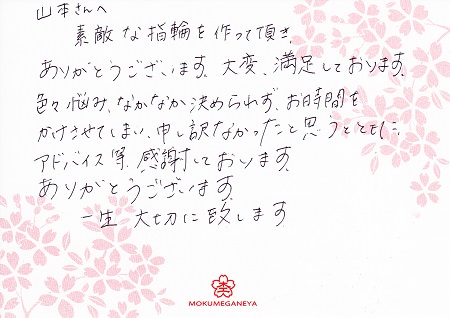 山本さんへ
素敵な指輪を作って頂き、
ありがとうございます。大変、満足しております。
色々悩み、なかなか決められず、お時間を
かけさせてしまい、申し訳なかったと思うとともに、
アドバイス等、感謝しております。
ありがとうございます。
一生 大切に致します
MOKUMEGANEYA